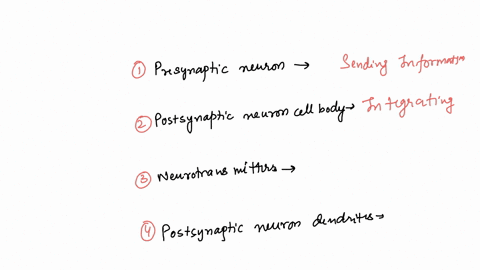 ① Presynaptic neuron → Sending Information
② Postsynaptic neuron cell body → Integrating
③ Neurotransmitters →
④ Postsynaptic neuron dendrites →